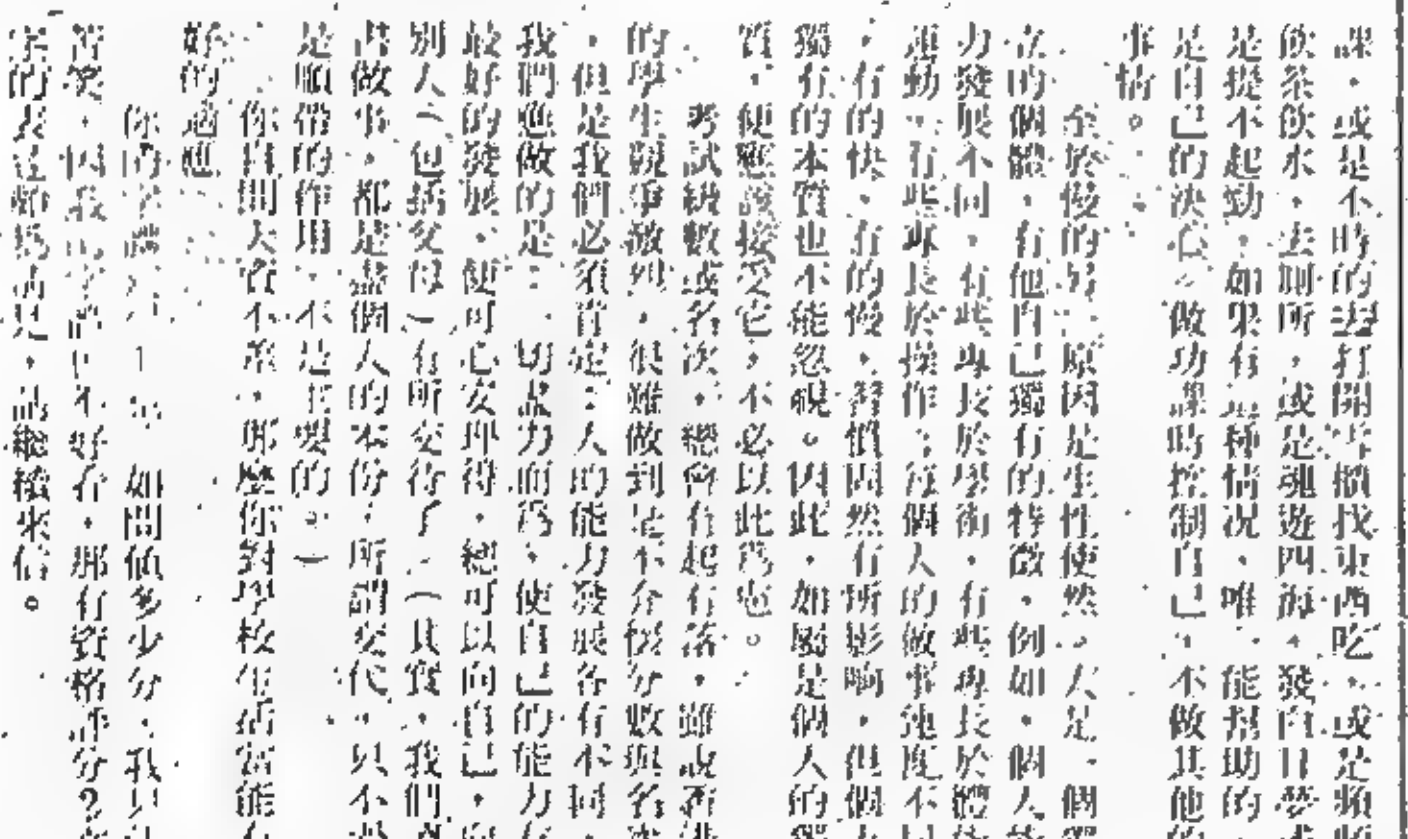 課，或是不時的去打開雪櫃找東西吃，或是頻
飲茶飲水，去厠所，或是魂遊四海，發白日夢
是提不起勁，如果有這種情况，唯一能幫助的
是自己的決心。做功課時控制自己，不做其他的
事情。
至於慢的另一原因是生性使然。人是一個獨
立的個體，有他自己獨有的特徵，例如，個人能
力發展不同，有些專長於學術，有些專長於體
運動，有些專長於操作；每個人的做事速度不同
，有的快，有的慢，習慣固然有所影响，但個人
獨有的本質也不能忽視。因此，如屬是個人的獨
質，便應該接受它，不必以此爲
考試級數或名次，總會有起有落，雖說香港
的學生競爭激烈，很難做到是不介意分數與名次
，但是我們必須肯定：人的能力發展各有不同，
我們應做的是：一切盡力而爲，使自己的能力有
最好的發展，便可心安理得，總可以向自己，向
別人（包括父母）有所交待了。（其實，我們
書做事，都是盡個人的本份，所謂交代，只不過
是順帶的作用，不是主要的。）
你自問天資不高，那麼你對學校生活當能有
好的適應
你的字體 如問値多少分，我只
苦笑，因我的字體也不好看，那有資格評分？
字的表達頗爲淸楚，請繼續來信。